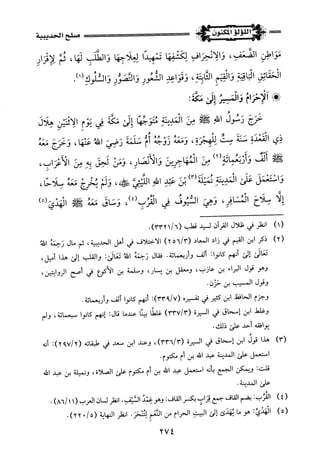 اللؤلؤ المكنون
صلح الحديبية
مَوَاطِنِ الضَّعْفِ، وَالِانْحِرَافِ لِكَشْفِهَا تَمْهِيدًا لِعِلَاجِهَا وَالطَّلَبِ لَهَا، ثُمَّ لِإِقْرَارِ
الحَقَائِقِ البَاقِيَةِ وَالْقِيَمِ الثَّابِتَةِ، وَقَوَاعِدِ الشُّعُورِ وَالتَّصَوُّرِ وَالسُّلُوكِ(١).
* الْإِحْرَامُ وَالْمَسِيرُ إِلَىٰ مَكَّةَ:
خَرَجَ رَسُولُ اللهِ ﷺ مِنَ الْمَدِينَةِ مُتَوَجِّهًا إِلَى مَكَّةَ فِي يَوْمِ الِاثْنَيْنِ هِلَالَ
ذِي الْقَعْدَةِ سَنَةَ سِتٍّ لِلْهِجْرَةِ، وَمَعَهُ زَوْجُهُ أُمُّ سَلَمَةَ رَضِيَ اللهُ عَنْهَا، وَخَرَجَ مَعَهُ
ﷺ أَلْفٌ وَأَرْبَعُمِائَةٍ(٢) مِنَ الْمُهَاجِرِينَ وَالْأَنْصَارِ، وَمَنْ لَحِقَ بِهِ مِنَ الْأَعْرَابِ،
وَاسْتَعْمَلَ عَلَى الْمَدِينَةِ نُمَيْلَةَ(٣) بْنَ عَبْدِ اللهِ اللَّيْثِيَّ ﷺ، وَلَمْ يُخْرِجْ مَعَهُ سِلَاحًا،
إِلَّا سِلَاحَ الْمُسَافِرِ، وَهِيَ السُّيُوفُ فِي الْقُرُبِ(٤)، وَسَاقَ مَعَهُ ﷺ الْهَدْيَ(٥)
(١) انظر في ظلال القرآن لسيد قطب (٣٣٢١/٦).
(٢) ذكر ابن القيم في زاد المعاد (٢٥٦/٣) الاختلاف في أهل الحديبية، ثم مال رحمهُ اللهُ
تَعَالَى إلى أنهم كانوا: ألف وأربعمائة. فقال رَحِمَهُ اللهُ تَعَالَى: والقلب إلى هذا أميل،
وهو قول البراء بن عازب، ومعقل بن يسار، وسلمة بن الأكوع في أصح الروايتين،
وقول المسيب بن حزن.
وجزم الحافظ ابن كثير في تفسيره (٣٣٩/٧): أنهم كانوا ألف وأربعمائة.
وغلط ابن إسحاق في السيرة (٣٣٧/٣) غلطًا بينًا عندما قال: إنهم كانوا سبعمائة، ولم
يوافقه أحد على ذلك.
(٣) هذا قول ابن إسحاق في السيرة (٣٣٦/٣)، وعند ابن سعد في طبقاته (٢٩٧/٢) أنه
استعمل على المدينة عبد الله بن أم مكتوم.
قلت: ويمكن الجمع بأنه استعمل عبد الله بن أم مكتوم على الصلاة، ونميلة بن عبد الله
على المدينة.
(٤) القُرُب: بضم القاف جمع قِرَاب بكسر القاف: وهو غِمْدُ السَّيْفِ. انظر لسان العرب (٨٦/١١).
(٥) الهَدْيُ: هو ما يُهْدَى إلى البيت الحرام من النَّعَمِ لِتُنْحَرَ. انظر النهاية (٢٢٠/٥).
٢٧٤